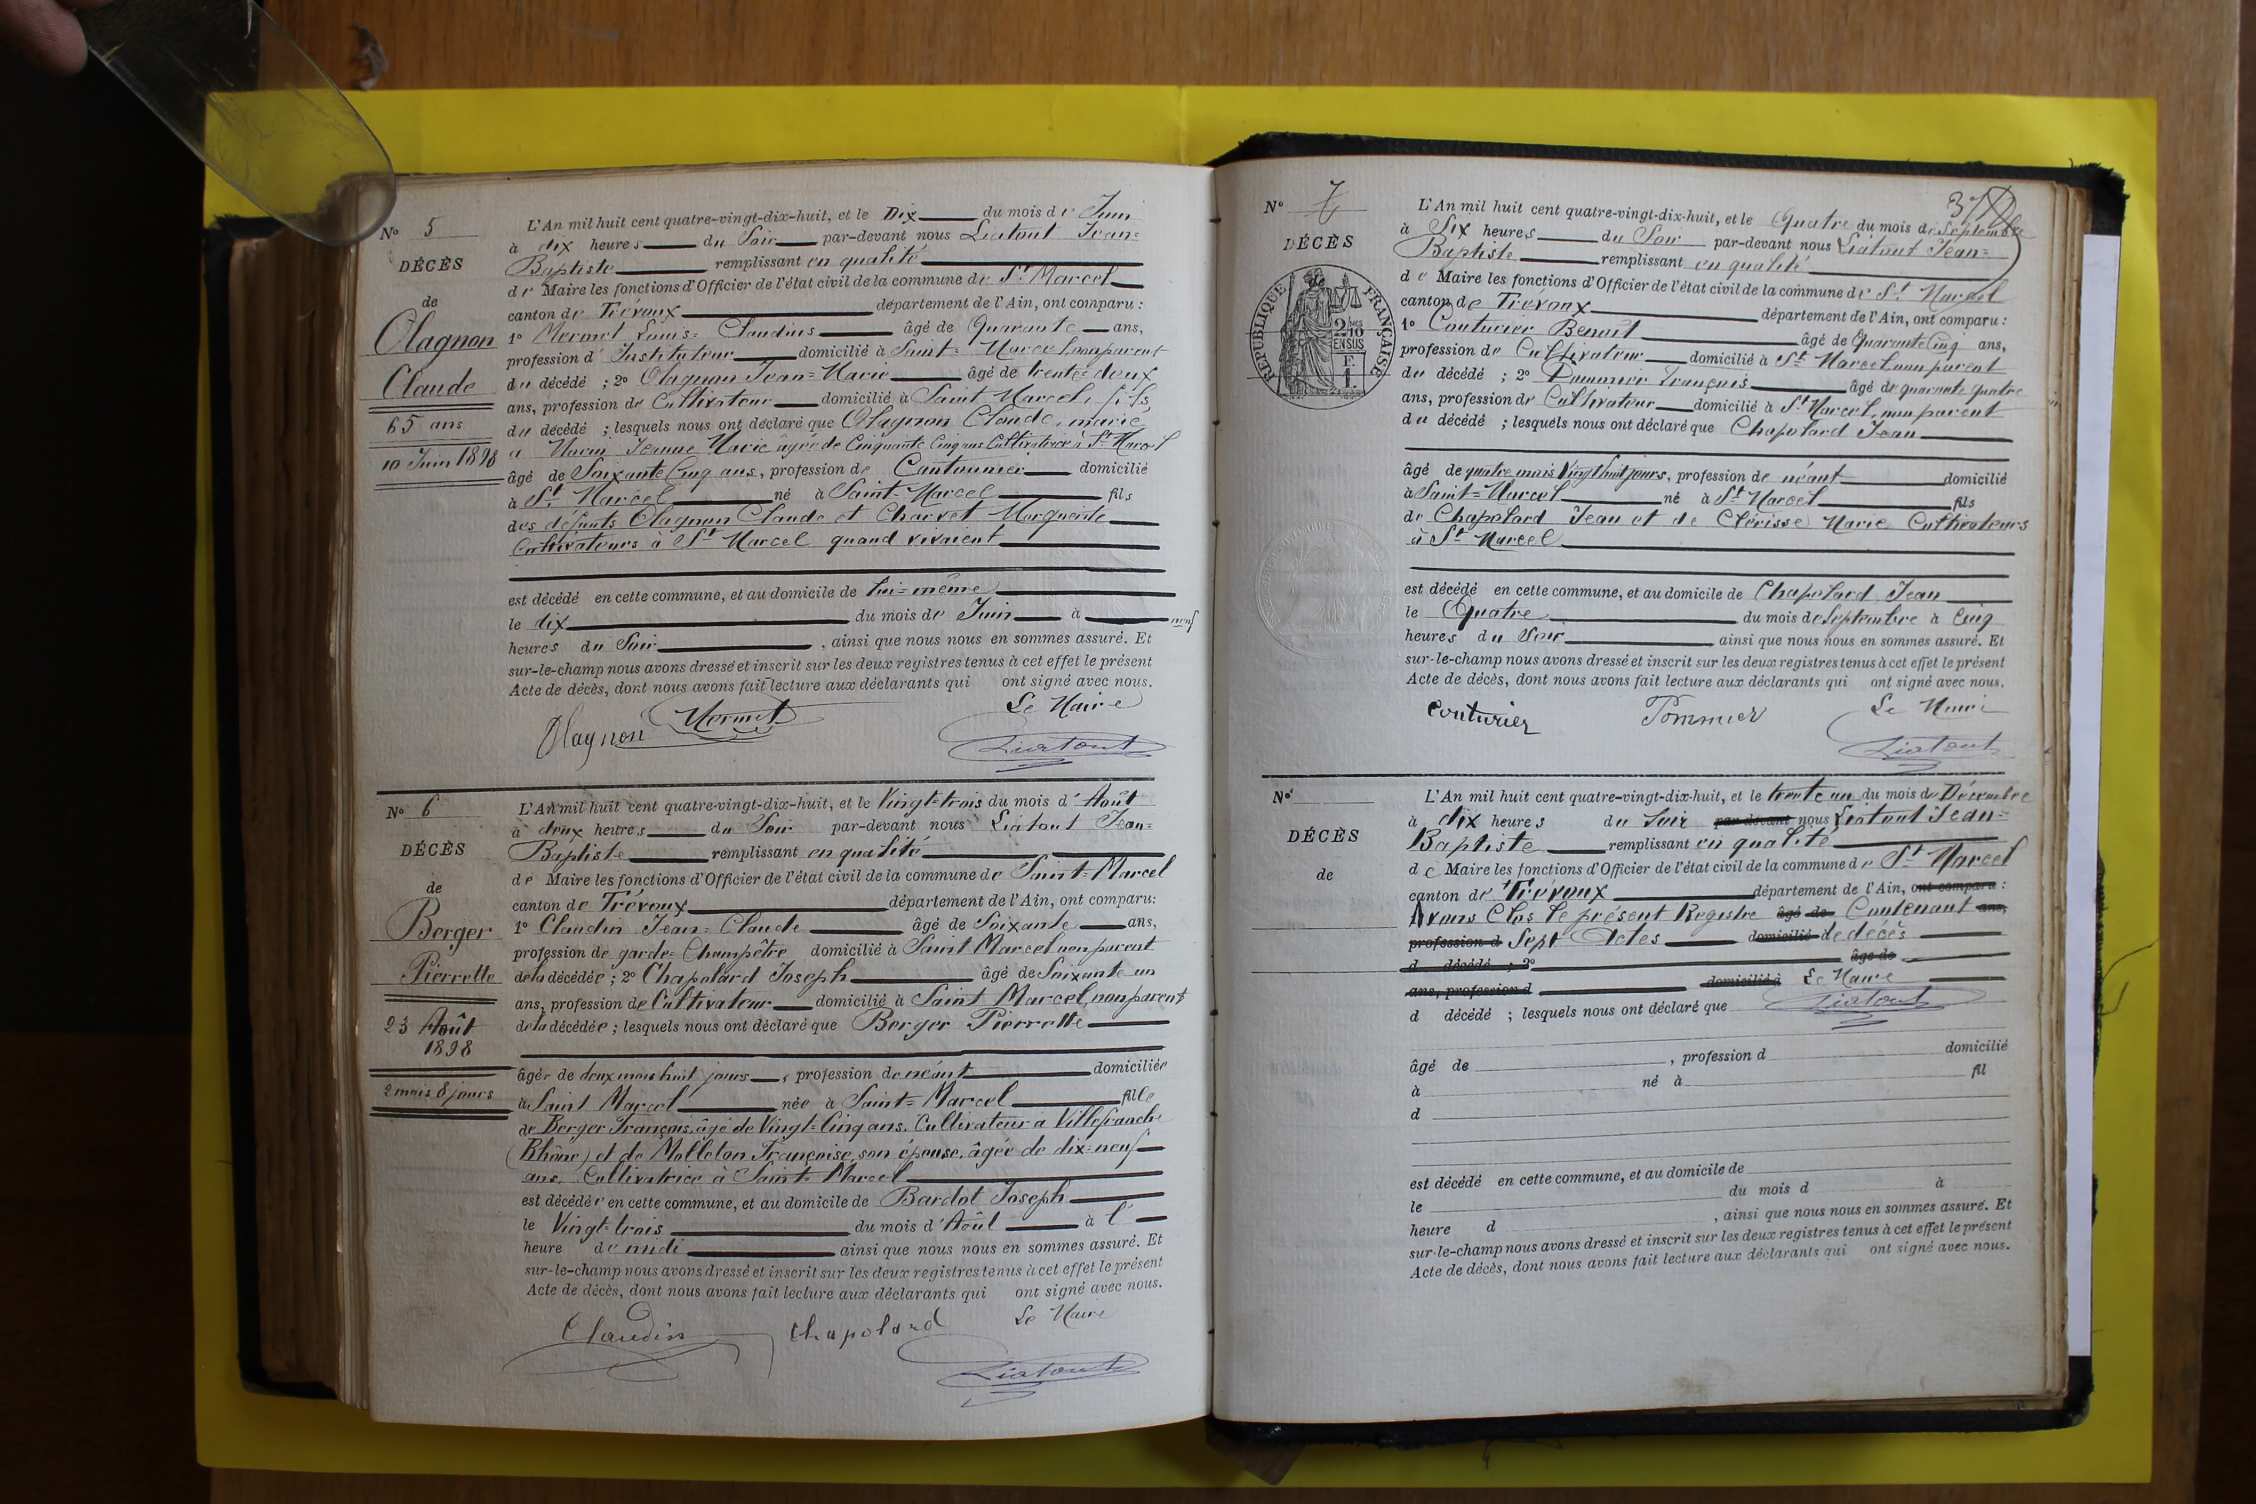 N° 5
DÉCÈS
de
Olagnon
Claude
65 ans
10 Juin 1898
L'An mil huit cent quatre-vingt-dix-huit, et le Dix du mois de Juin
à dix heures du Soir par-devant nous Liatout Jean=
Baptiste remplissant en qualité
de Maire les fonctions d'Officier de l'état civil de la commune de St Marcel
canton de Trévoux département de l'Ain, ont comparu :
1° Mermet Louis=Claudius âgé de Quarante ans,
profession d'Instituteur domicilié à Saint=Marcel, non parent
du décédé ; 2° Olagnon Jean=Marie âgé de trente=deux
ans, profession de Cultivateur domicilié à Saint Marcel, fils
du décédé ; lesquels nous ont déclaré que Olagnon Claude, marié
à Jeanne Marie âgée de Cinquante Cinq ans Cultivatrice à St Marcel
âgé de Soixante Cinq ans, profession de Cantonnier domicilié
à St Marcel né à Saint=Marcel fils
des défunts Olagnon Claude et Charvet Marguerite
Cultivateurs à St Marcel quand vivaient
est décédé en cette commune, et au domicile de lui=même
le dix du mois de Juin à neuf
heures du Soir, ainsi que nous nous en sommes assuré. Et
sur-le-champ nous avons dressé et inscrit sur les deux registres tenus à cet effet le présent
Acte de décès, dont nous avons fait lecture aux déclarants qui ont signé avec nous.
Le Maire
Olagnon Mermet
Liatout
N° 6
DÉCÈS
de
Berger
Pierrette
23 Août
1898
2 mois 8 jours
L'An mil huit cent quatre-vingt-dix-huit, et le Vingt=trois du mois d'Août
à deux heures du Soir par-devant nous Liatout Jean=
Baptiste remplissant en qualité
de Maire les fonctions d'Officier de l'état civil de la commune de Saint=Marcel
canton de Trévoux département de l'Ain, ont comparu:
1° Claudin Jean=Claude âgé de Soixante ans,
profession de garde=Champêtre domicilié à Saint Marcel non parent
de la décédée ; 2° Chapolard Joseph âgé de Soixante un
ans, profession de Cultivateur domicilié à Saint Marcel, non parent
de la décédée ; lesquels nous ont déclaré que Berger Pierrette
âgée de deux mois huit jours, profession de néant domiciliée
à Saint Marcel née à Saint=Marcel fille
de Berger François, âgé de Vingt=Cinq ans, Cultivateur à Villefranche
(Rhône) et de Molleton Françoise, son épouse, âgée de dix=neuf
ans, Cultivatrice à Saint=Marcel
est décédée en cette commune, et au domicile de Bardot Joseph
le Vingt=trois du mois d'Août à l'
heure de midi ainsi que nous nous en sommes assuré. Et
sur-le-champ nous avons dressé et inscrit sur les deux registres tenus à cet effet le présent
Acte de décès, dont nous avons fait lecture aux déclarants qui ont signé avec nous.
Le Maire
Claudin Chapolard
Liatout
N° 7
DÉCÈS
RÉPUBLIQUE FRANÇAISE
2/10
EN SUS
F
1
L'An mil huit cent quatre-vingt-dix-huit, et le Quatre du mois de Septembre
à Six heures du Soir par-devant nous Liatout Jean=
Baptiste remplissant en qualité
de Maire les fonctions d'Officier de l'état civil de la commune de St Marcel
canton de Trévoux département de l'Ain, ont comparu :
1° Couturier Benoît âgé de Quarante Cinq ans,
profession de Cultivateur domicilié à St Marcel non parent
du décédé ; 2° Pommier François âgé de quarante quatre
ans, profession de Cultivateur domicilié à St Marcel, non parent
du décédé ; lesquels nous ont déclaré que Chapolard Jean
âgé de quatre mois Vingt huit jours, profession de néant domicilié
à Saint=Marcel né à St Marcel fils
de Chapolard Jean et de Clérisse Marie Cultivateurs
à St Marcel
est décédé en cette commune, et au domicile de Chapolard Jean
le Quatre du mois de Septembre à Cinq
heures du Soir ainsi que nous nous en sommes assuré. Et
sur-le-champ nous avons dressé et inscrit sur les deux registres tenus à cet effet le présent
Acte de décès, dont nous avons fait lecture aux déclarants qui ont signé avec nous.
Couturier Pommier Le Maire
Liatout
N°
DÉCÈS
de
L'An mil huit cent quatre-vingt-dix-huit, et le trente un du mois de Décembre
à dix heures du Soir par-devant nous Liatout Jean=
Baptiste remplissant en qualité
de Maire les fonctions d'Officier de l'état civil de la commune de St Marcel
canton de Trévoux département de l'Ain, ont comparu :
Avons Clos le présent Registre âgé de Contenant ans,
profession d Sept Actes domicilié de décès
d décédé ; 2° âgé de
ans, profession d domicilié à Le Maire
d décédé ; lesquels nous ont déclaré que Liatout
âgé de , profession d domicilié
à né à fil
d
est décédé en cette commune, et au domicile de
le du mois d à
heure d , ainsi que nous nous en sommes assuré. Et
sur-le-champ nous avons dressé et inscrit sur les deux registres tenus à cet effet le présent
Acte de décès, dont nous avons fait lecture aux déclarants qui ont signé avec nous.